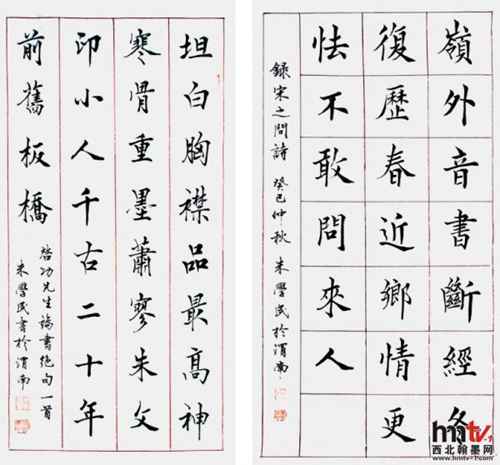 坦白胸襟品最高神
寒骨重墨蕭寥朱文
印小人千古二十年
前舊板橋
啓功先生論書絕句一首
朱學民書於渭南
嶺外音書斷經冬
復歷春近鄉情更
怯不敢問來人
錄宋之問詩 癸巳仲秋 朱學民於渭南
西北翰墨网